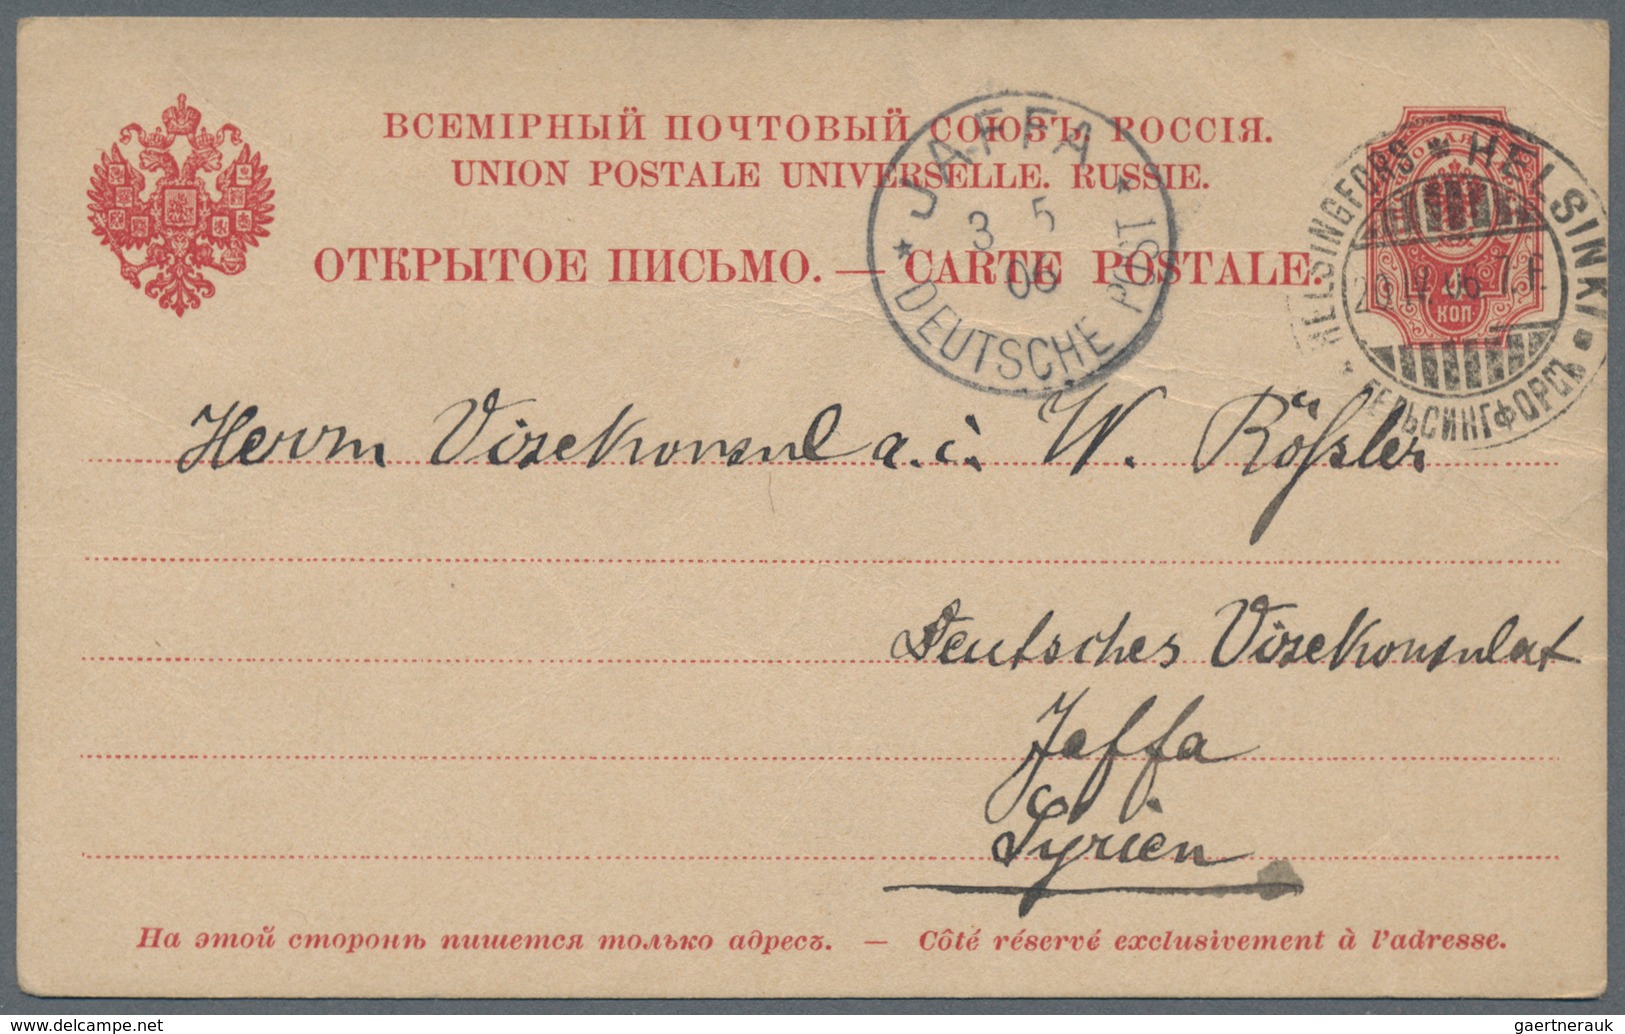 ВСЕМІРНЫЙ ПОЧТОВЫЙ СОЮЗЪ. РОССІЯ.
UNION POSTALE UNIVERSELLE. RUSSIE.
ОТКРЫТОЕ ПИСЬМО. — CARTE POSTALE.
JAFFA
3 5
06
* DEUTSCHE POST *
HELSINGFORS * HELSINKI
20.IV.06
ГЕЛЬСИНГФОРСЪ
4
КОП
Herrn Vizekonsul a. i. W. Rößler
Deutsches Vizekonsulat
Jaffa
Syrien
На этой сторонѣ пишется только адресъ. — Côté réservé exclusivement à l'adresse.
www.delcampe.net
gaertnerauk